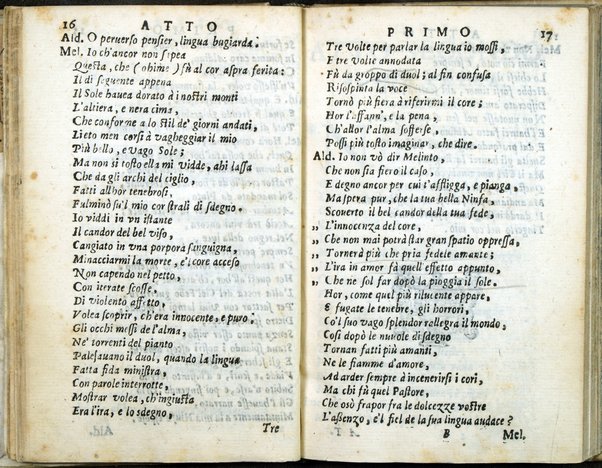 16 ATTO
Ald. O peruerso pensier, lingua bugiarda.
Mel. Io ch'ancor non sapea
Questa, che (ohime) fù al cor aspra ferita:
Il dì seguente appena
Il Sole hauea dorato à i nostri monti
L'altiera, e nera cima,
Che conforme a lo stil de' giorni andati,
Lieto men corsi à vagheggiar il mio
Più bello, e vago Sole;
Ma non si tosto ella mi vidde, ahi lassa
Che da gli archi del ciglio,
Fatti allhor tenebrosi,
Fulminò su'l mio cor strali di sdegno.
Io viddi in vn istante
Il candor del bel viso,
Cangiato in vna porpora sanguigna,
Minacciarmi la morte, e'l core acceso
Non capendo nel petto,
Con iterate scosse,
Di violento affetto,
Volea scoprir, ch'era innocente, e puro.
Gli occhi messi de l'alma,
Ne' torrenti del pianto
Palesauano il duol, quando la lingua
Fatta fida ministra,
Con parole interrotte,
Mostrar volea, ch'ingiusta
Era l'ira, e lo sdegno,
Tre
PRIMO 17
Tre volte per parlar la lingua io mossi,
E tre volte annodata
Fù da groppo di duol; al fin confusa
Risospinta la voce
Tornò più fiera à riferirmi il core;
Hor l'affann', e la pena,
Ch'allor l'alma sofferse,
Possi più tosto imaginar, che dire.
Ald. Io non vò dir Melinto,
Che non sia fiero il caso,
E degno ancor per cui t'affligga, e pianga,
Ma spera pur, che la tua bella Ninfa,
Scouerto il bel candor della tua fede,
„ L'innocenza del core,
„ Che non mai potrà star gran spatio oppressa,
„ Tornerà più che pria fedele amante;
„ L'ira in amor fà quell'effetto appunto,
„ Che ne sol far dopò la pioggia il sole.
Hor, come quel più rilucente appare,
E fugate le tenebre, gli horrori,
Co'l suo vago splendor rallegra il mondo,
Così dopò le nuuole di sdegno
Tornan fatti più amanti,
Ne le fiamme d'amore,
Ad arder sempre à incenerirsi i cori,
Ma chi fù quel Pastore,
Che osò frapor fra le dolcezze vostre
L'assenzo, e'l fiel de la sua lingua audace?
B Mel.